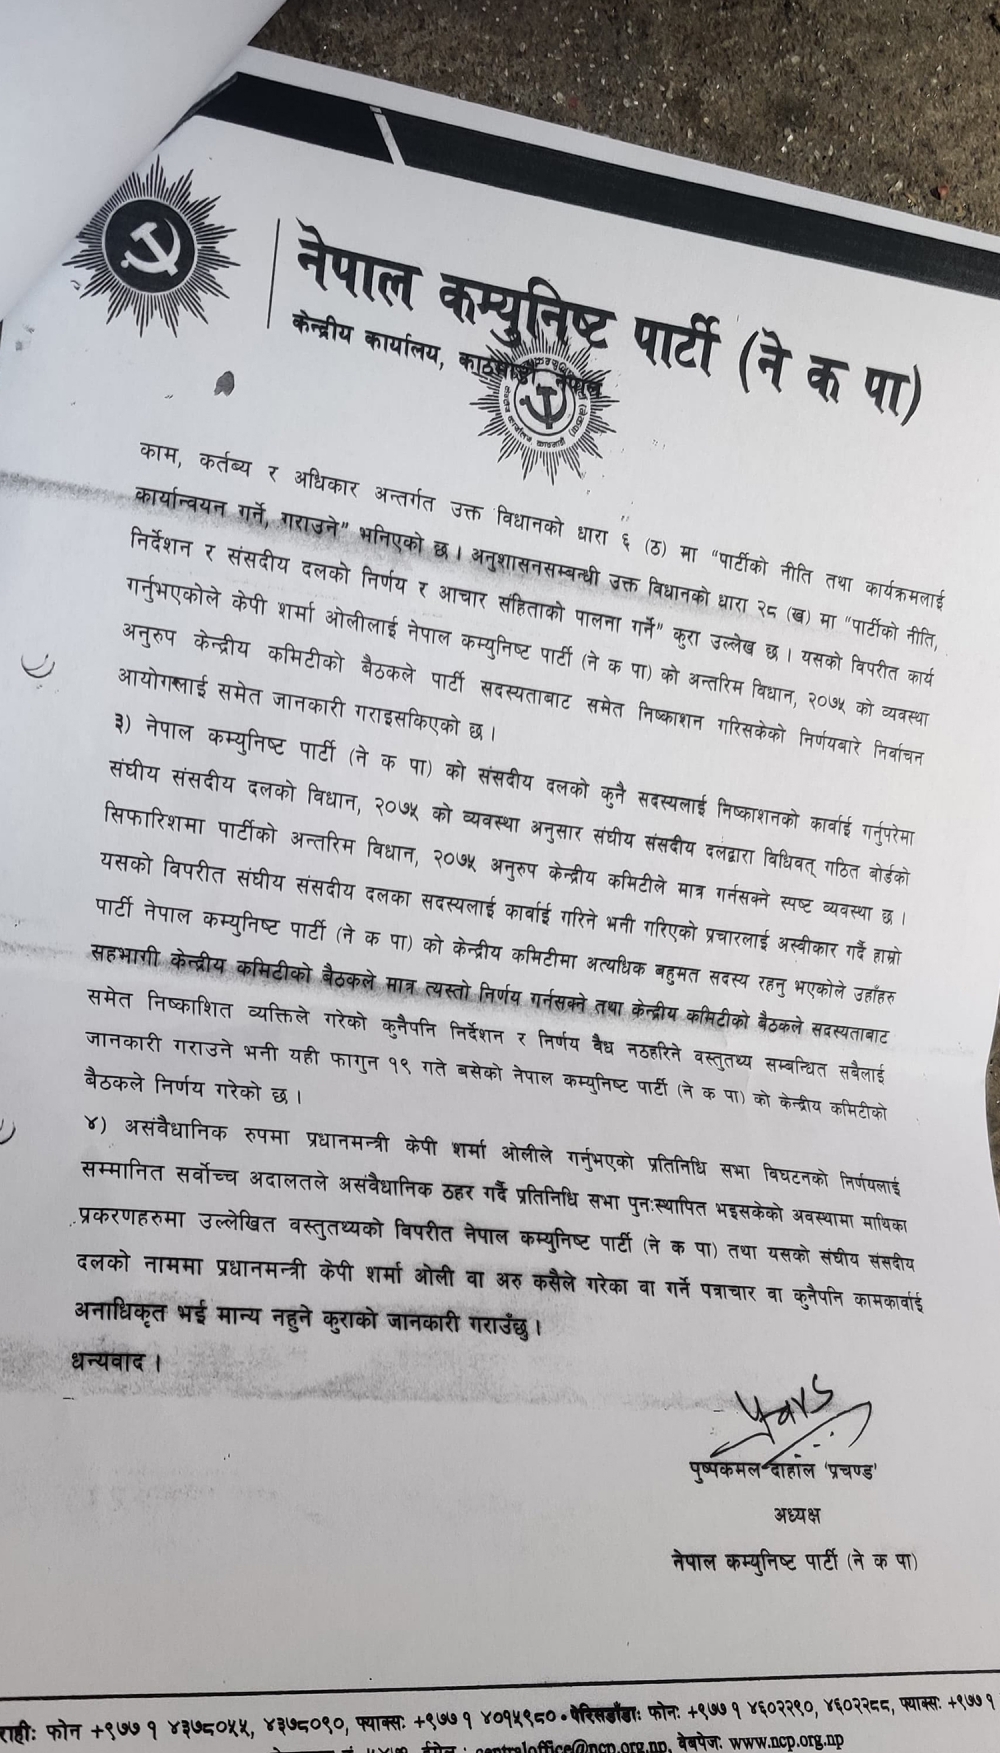 नेपाल कम्युनिष्ट पार्टी (ने क पा)
केन्द्रीय कार्यालय, काठमाडौं, नेपाल
काम, कर्तब्य र अधिकार अन्तर्गत उक्त विधानको धारा ६ (ठ) मा "पार्टीको नीति तथा कार्यक्रमलाई
कार्यान्वयन गर्ने, गराउने" भनिएको छ । अनुशासनसम्बन्धी उक्त विधानको धारा २८ (ख) मा "पार्टीको नीति,
निर्देशन र संसदीय दलको निर्णय र आचार संहिताको पालना गर्ने" कुरा उल्लेख छ । यसको विपरीत कार्य
गर्नुभएकोले केपी शर्मा ओलीलाई नेपाल कम्युनिष्ट पार्टी (ने क पा) को अन्तरिम विधान, २०७५ को व्यवस्था
अनुरुप केन्द्रीय कमिटीको बैठकले पार्टी सदस्यताबाट समेत निष्काशन गरिसकेको निर्णयबारे निर्वाचन
आयोगलाई समेत जानकारी गराइसकिएको छ ।
३) नेपाल कम्युनिष्ट पार्टी (ने क पा) को संसदीय दलको कुनै सदस्यलाई निष्काशनको कार्वाई गर्नुपरेमा
संघीय संसदीय दलको विधान, २०७५ को व्यवस्था अनुसार संघीय संसदीय दलद्वारा विधिवत् गठित बोर्डको
सिफारिशमा पार्टीको अन्तरिम विधान, २०७५ अनुरुप केन्द्रीय कमिटीले मात्र गर्नसक्ने स्पष्ट व्यवस्था छ ।
यसको विपरीत संघीय संसदीय दलका सदस्यलाई कार्वाई गरिने भनी गरिएको प्रचारलाई अस्वीकार गर्दै हाम्रो
पार्टी नेपाल कम्युनिष्ट पार्टी (ने क पा) को केन्द्रीय कमिटीमा अत्यधिक बहुमत सदस्य रहनु भएकोले उहाँहरु
सहभागी केन्द्रीय कमिटीको बैठकले मात्र त्यस्तो निर्णय गर्नसक्ने तथा केन्द्रीय कमिटीको बैठकले सदस्यताबाट
समेत निष्काशित व्यक्तिले गरेको कुनैपनि निर्देशन र निर्णय वैध नठहरिने वस्तुतथ्य सम्बन्धित सबैलाई
जानकारी गराउने भनी यही फागुन १९ गते बसेको नेपाल कम्युनिष्ट पार्टी (ने क पा) को केन्द्रीय कमिटीको
बैठकले निर्णय गरेको छ ।
४) असंवैधानिक रुपमा प्रधानमन्त्री केपी शर्मा ओलीले गर्नुभएको प्रतिनिधि सभा विघटनको निर्णयलाई
सम्मानित सर्वोच्च अदालतले असंवैधानिक ठहर गर्दै प्रतिनिधि सभा पुनःस्थापित भइसकेको अवस्थामा माथिका
प्रकरणहरुमा उल्लेखित वस्तुतथ्यको विपरीत नेपाल कम्युनिष्ट पार्टी (ने क पा) तथा यसको संघीय संसदीय
दलको नाममा प्रधानमन्त्री केपी शर्मा ओली वा अरु कसैले गरेका वा गर्ने पत्राचार वा कुनैपनि कामकार्वाई
अनाधिकृत भई मान्य नहुने कुराको जानकारी गराउँछु ।
धन्यवाद ।
पुष्पकमल दाहाल 'प्रचण्ड'
अध्यक्ष
नेपाल कम्युनिष्ट पार्टी (ने क पा)
राही: फोन +९७७ १ ४३७८०५५, ४३७८०९०, फ्याक्स: +९७७ १ ४०१५९८० • पेरिसडाँडा: फोन: +९७७ १ ४६०२२९०, ४६०२२८८, फ्याक्स: +९७७ १
ईमेल : centraloffice@ncp.org.np, वेबपेज: www.ncp.org.np